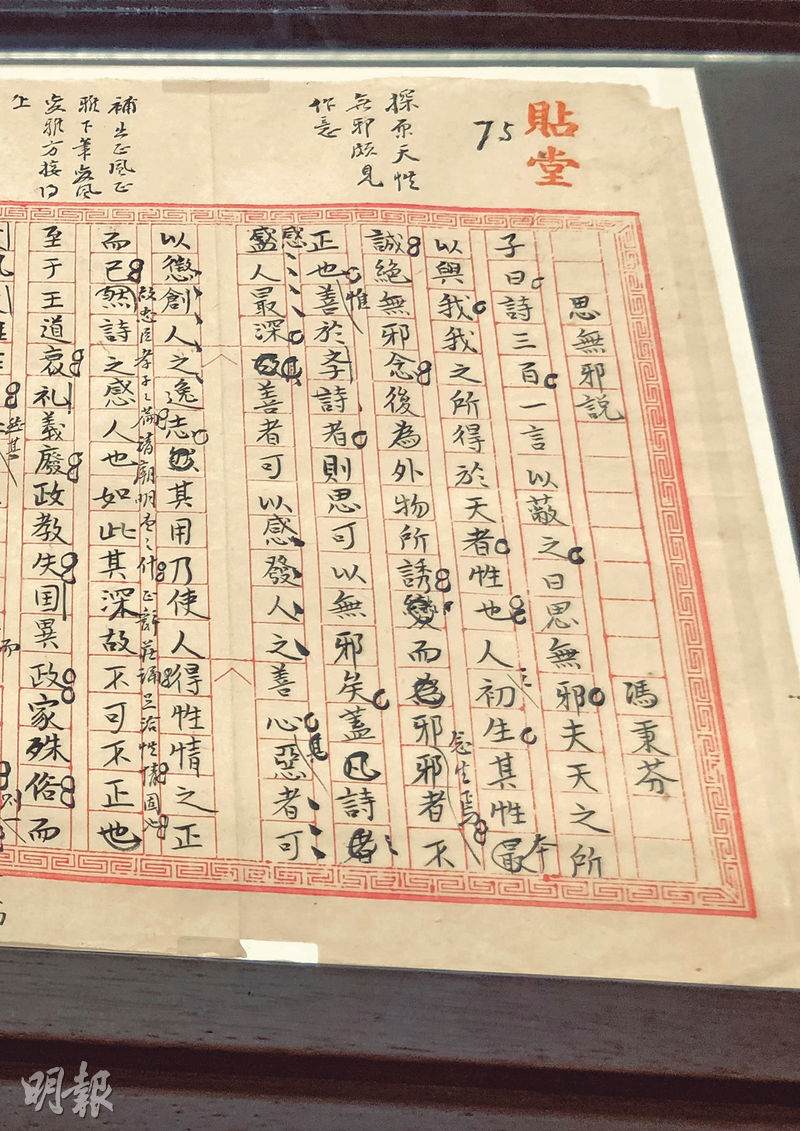 貼堂
75
探原天性
無邪頗見
作意
補出正風正
雅下筆
上
思無邪說
馮秉芬
子曰詩三百一言以蔽之曰思無邪夫天之所
以與我我之所得於天者性也人初生其性最
本
誠絕無邪念後為外物所誘變而為邪邪者不
念生焉
正也善於學詩者則思可以無邪矣蓋凡詩者
惟
感
盛人最深故善者可以感發人之善心惡者可
其
其
以懲創人之逸志然其用乃使人得性情之正
而已然詩之感人也如此其深故不可不正也
故忠臣孝子之篇清廟明堂之什正辭莊誦足治性情固已
至于王道衰礼義廢政教失国異政家殊俗而
明報